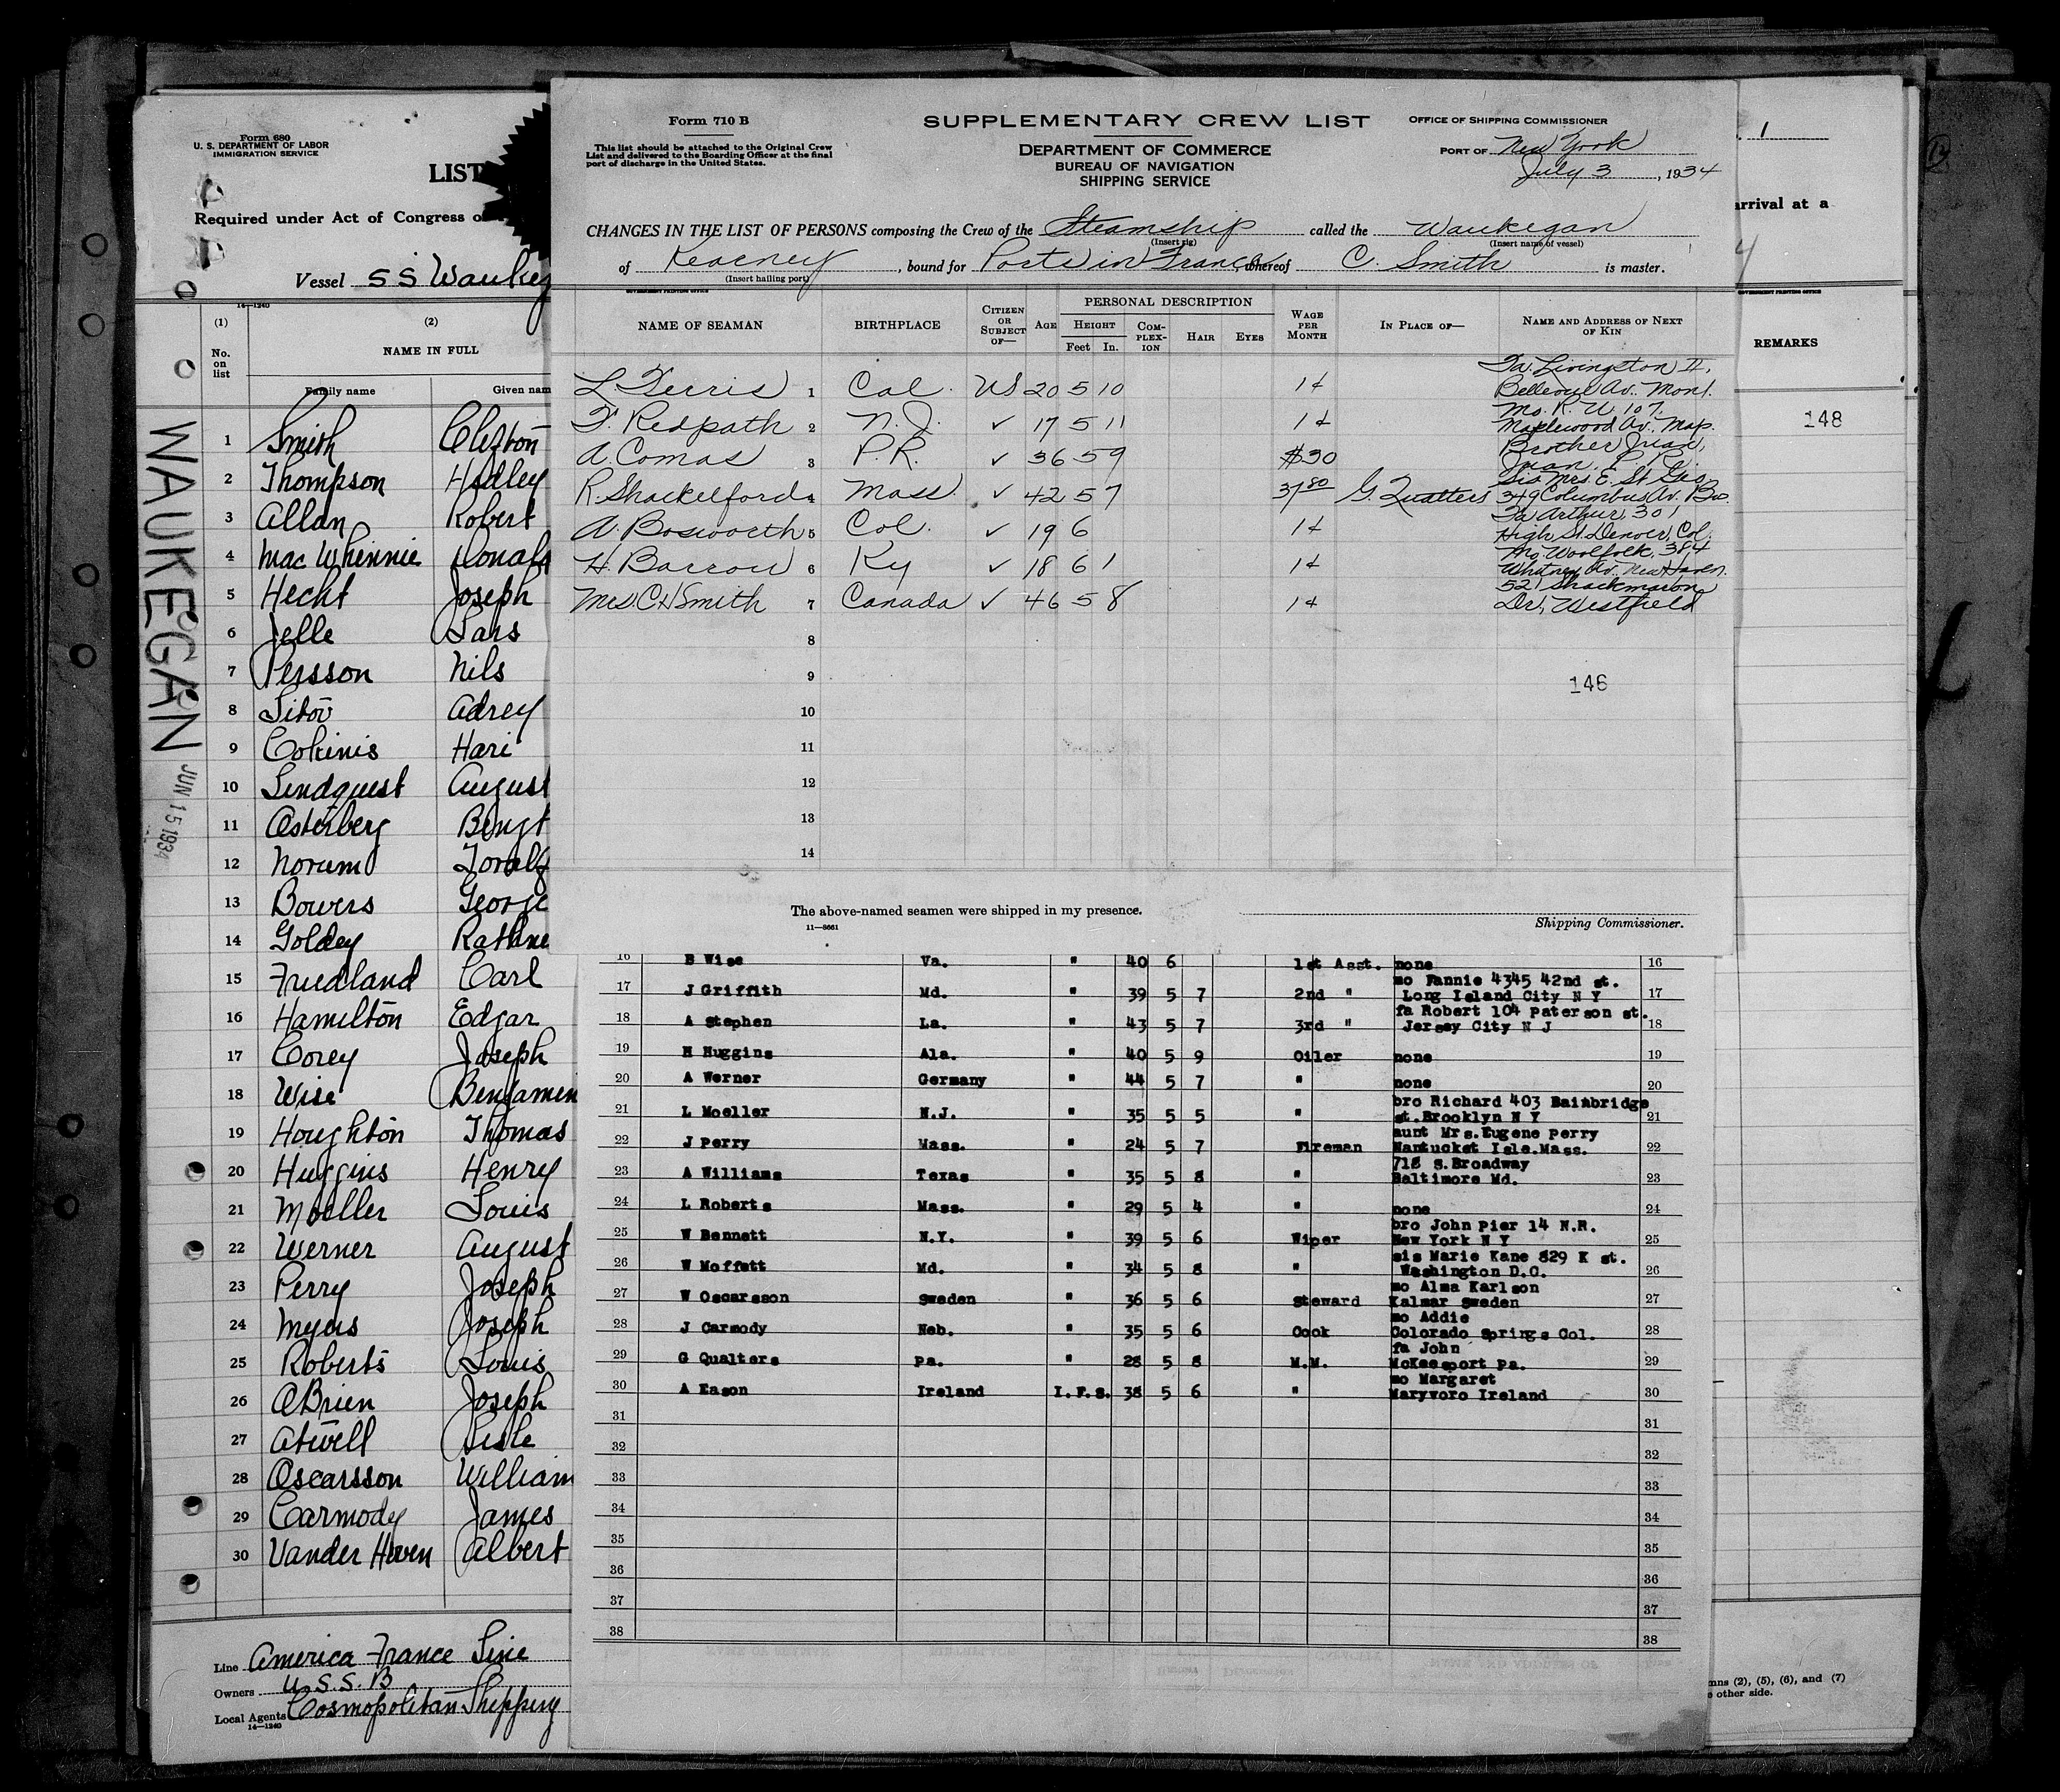 Form 680
U. S. DEPARTMENT OF LABOR
IMMIGRATION SERVICE
LIST
Required under Act of Congress o
Vessel SS Waukeg
14—1240
(1) (2)
No. on list
NAME IN FULL
Family name Given nam
WAUKEGAN
JUN 15 1934
1 Smith Clifton
2 Thompson Hadley
3 Allan Robert
4 MacWhinnie Donald
5 Hecht Joseph
6 Jelle Lars
7 Persson Nils
8 Titov Adrey
9 Cokinis Hari
10 Lindquest August
11 Osterberg Bengt
12 Norum Toralf
13 Bowers George
14 Goldey Rathne
15 Friedland Carl
16 Hamilton Edgar
17 Corey Joseph
18 Wise Benjamin
19 Houghton Thomas
20 Huggins Henry
21 Moeller Louis
22 Werner August
23 Perry Joseph
24 Myers Joseph
25 Roberts Louis
26 OBrien Joseph
27 Atwell Lisle
28 Oscarsson William
29 Carmody James
30 Vander Haven Albert
Line America France Line
Owners U.S.S.B
Local Agents Cosmopolitan Shipping
14—1240
Form 710 B
This list should be attached to the Original Crew
List and delivered to the Boarding Officer at the final
port of discharge in the United States.
SUPPLEMENTARY CREW LIST
DEPARTMENT OF COMMERCE
BUREAU OF NAVIGATION
SHIPPING SERVICE
OFFICE OF SHIPPING COMMISSIONER
PORT OF New York
July 3, 1934
CHANGES IN THE LIST OF PERSONS composing the Crew of the Steamship called the Waukegan
(Insert rig) (Insert name of vessel)
of Kearney, bound for Ports in France, whereof C. Smith is master.
(Insert hailing port)
GOVERNMENT PRINTING OFFICE
NAME OF SEAMAN BIRTHPLACE CITIZEN OR SUBJECT OF— AGE PERSONAL DESCRIPTION HEIGHT Feet In. COMPLEXION HAIR EYES WAGE PER MONTH IN PLACE OF— NAME AND ADDRESS OF NEXT OF KIN
L Ferris 1 Cal. US 20 5 10 1¢ Fa. Livingston II, Bellevue Av. Mont.
F. Redpath 2 N.J. ✓ 17 5 11 1¢ Mo. R. U 107 Maplewood Av. Map.
A. Comas 3 P.R. ✓ 36 5 9 $30 Brother Juan, Juan, P. R.
R. Shackelford 4 Mass. ✓ 42 5 7 37 80 G. Qualters Sis Mrs. E. St Geo 349 Columbus Av. Bos.
A. Bosworth 5 Col. ✓ 19 6 1¢ Fa Arthur, 301 High St Denver, Col.
H. Barrow 6 Ky ✓ 18 6 1 1¢ Mo. Woolfolk, 384 Whitney Av. New Haven.
Mrs. C H Smith 7 Canada ✓ 46 5 8 1¢ 521 Shackmaxon Dr, Westfield
8
9
146
10
11
12
13
14
The above-named seamen were shipped in my presence.
11—8661
Shipping Commissioner.
16 B Wise Va. " 40 6 1st Asst. none 16
17 J Griffith Md. " 39 5 7 2nd " mo Fannie 4345 42nd st. Long Island City N Y 17
18 A Stephen La. " 43 5 7 3rd " fa Robert 104 Paterson st. Jersey City N J 18
19 H Huggins Ala. " 40 5 9 Oiler none 19
20 A Werner Germany " 44 5 7 " none 20
21 L Moeller N.J. " 35 5 5 " bro Richard 403 Bainbridge st. Brooklyn N Y 21
22 J Perry Mass. " 24 5 7 Fireman aunt Mrs. Eugene Perry Nantucket Isle. Mass. 22
23 A Williams Texas " 35 5 8 " 718 S. Broadway Baltimore Md. 23
24 L Roberts Mass. " 29 5 4 " none 24
25 W Bennett N.Y. " 39 5 6 Wiper bro John Pier 14 N.R. New York N Y 25
26 W Moffett Md. " 34 5 8 " sis Marie Kane 829 K st. Washington D.C. 26
27 W Oscarsson Sweden " 36 5 6 Steward mo Alma Karlson Kalmar Sweden 27
28 J Carmody Neb. " 35 5 6 Cook mo Addie Colorado Springs Col. 28
29 G Qualters Pa. " 28 5 8 M.M. fa John McKeesport Pa. 29
30 A Eason Ireland I.F.S. 38 5 6 " mo Margaret Maryvoro Ireland 30
31 31
32 32
33 33
34 34
35 35
36 36
37 37
38 38
1
rrival at a
4
GOVERNMENT PRINTING OFFICE
REMARKS
148
mns (2), (5), (6), and (7)
e other side.
12